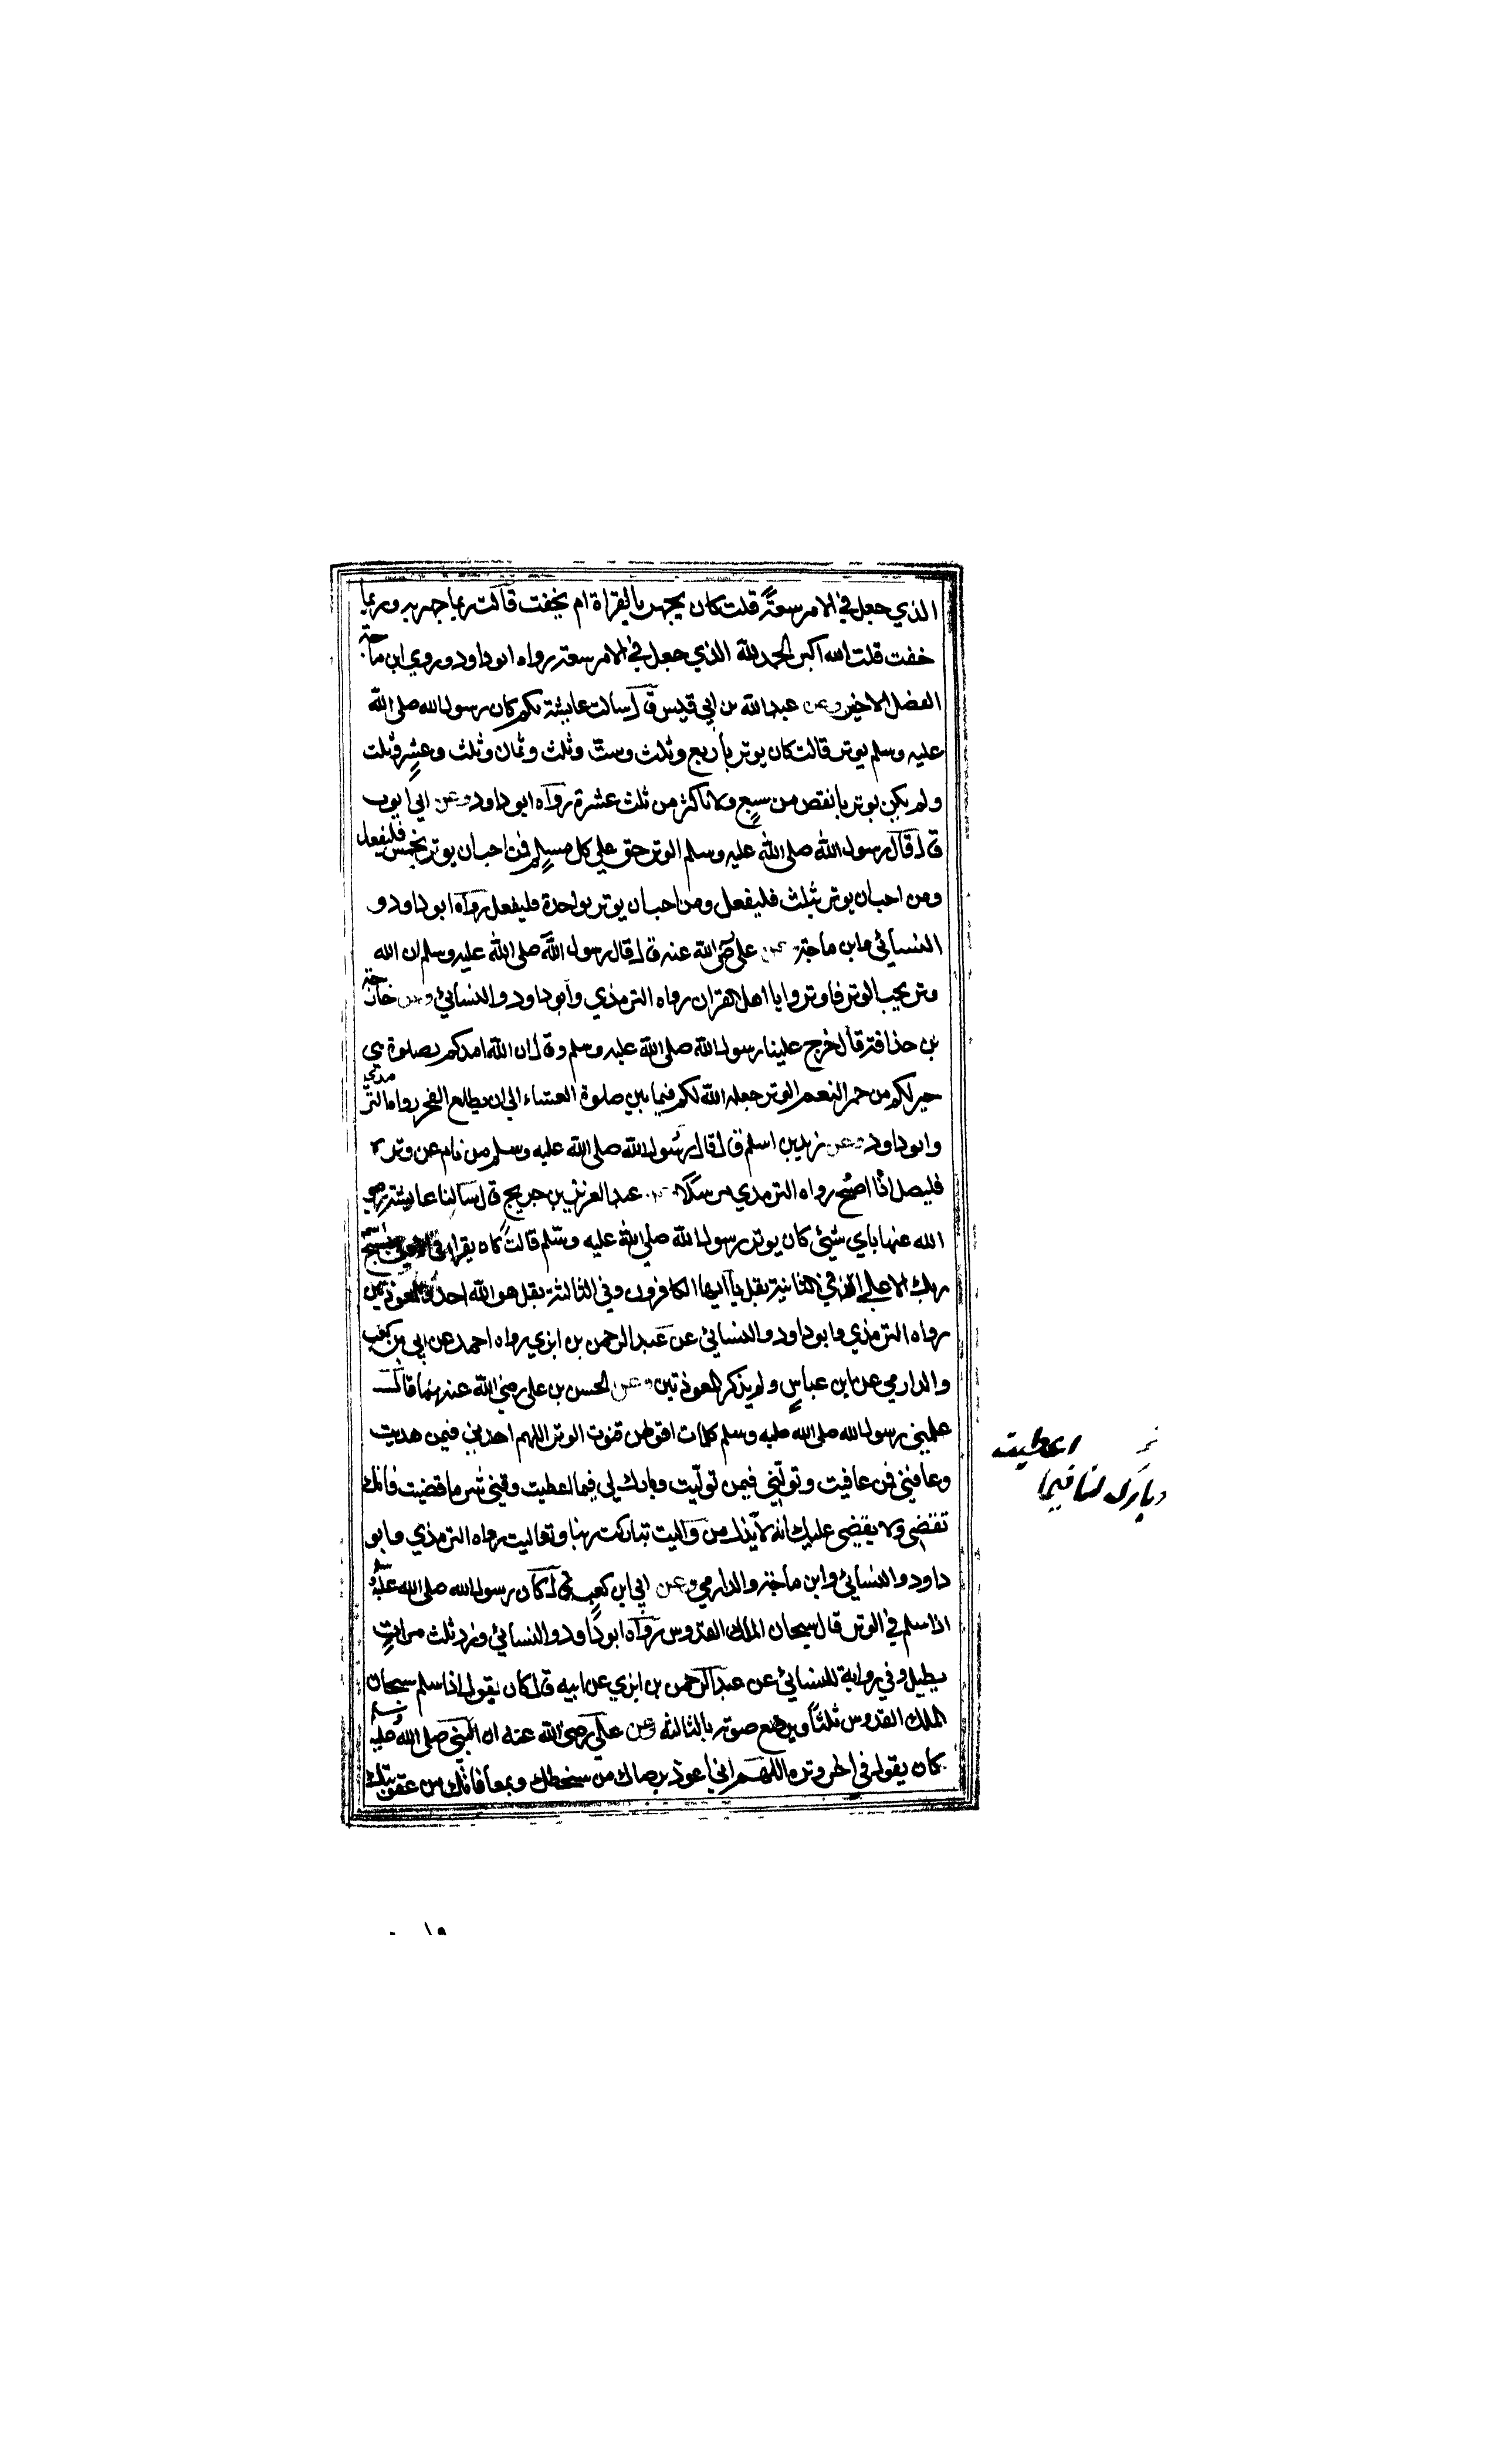 الذي جعل في الامر سعة قلت كان يجهر بالقراة ام يخفت قالت ربما جهر به وربما
خفت قلت الله اكبر الحمد لله الذي جعل في الامر سعة رواه ابو داود وروي ابن ماجة
الفضل الاخير وعن عبد الله بن ابي قيس قال سالت عايشة بكم كان رسول الله صلى الله
عليه وسلم يوتر قالت كان يوتر باربع وثلث وست وثلث وثمان وثلث وعشر وثلث
ولم يكن يوتر بانقص من سبع ولا باكثر من ثلث عشرة رواه ابو داود وعن ابي ايوب
قال قال رسول الله صلى الله عليه وسلم الوتر حق علي كل مسلم فمن احب ان يوتر بخمس فليفعل
ومن احب ان يوتر بثلث فليفعل ومن احب ان يوتر بواحدة فليفعل رواه ابو داود و
النسائي وابن ماجة وعن علي رضي الله عنه قال قال رسول الله صلى الله عليه وسلم ان الله
وتر يحب الوتر فاوتروا يا اهل القران رواه الترمذي وابو داود والنسائي وعن خارجة
بن حذافة قال خرج علينا رسول الله صلى الله عليه وسلم وقال ان الله امدكم بصلوة هي
خير لكم من حمر النعم الوتر جعله الله لكم فيما بين صلوة العشاء الى ان يطلع الفجر رواه الترمذي
وابو داود وعن زيد بن اسلم قال قال رسول الله صلى الله عليه وسلم من نام عن وتره
فليصل اذا اصبح رواه الترمذي مرسلا وعن عبد العزيز بن جريج قال سالنا عايشة رضي
الله عنها باي شيئ كان يوتر رسول الله صلي الله عليه وسلم قالت كان يقرا في الاولى بسبح اسم
ربك الاعلي وفي الثانية بقل يا ايها الكافرون وفي الثالثة بقل هو الله احد والمعوذتين
رواه الترمذي وابو داود والنسائي عن عبد الرحمن بن ابزي رواه احمد عن ابي بن كعب
والدارمي عن ابن عباس ولم يذكر المعوذتين وعن الحسن بن علي رضي الله عنهما قال
علمني رسول الله صلى الله عليه وسلم كلمات اقولهن قنوت الوتر اللهم اهدني فيمن هديت
وعافني فمن عافيت وتولني فيمن توليت وبارك لي فيما اعطيت وقني شر ما قضيت فانك
تقضي ولا يقضي عليك انه لا يذل من واليت تباركت ربنا وتعاليت رواه الترمذي وابو
داود والنسائي وابن ماجة والدارمي وعن ابي ابن كعب قال كان رسول الله صلى الله عليه وسلم
اذا سلم في الوتر قال سبحان الملك القدوس رواه ابو داود والنسائي وزد ثلث مرات
يطيل وفي رواية للنسائي عن عبد الرحمن بن ابزي عن ابيه قال كان يقول اذا سلم سبحان
الملك القدوس ثلثا ويرفع صوته بالثالثة وعن علي رضي الله عنه ان النبي صلى الله عليه وسلم
كان يقول في اخر وتره اللهم اني اعوذ برضاك من سخطك وبمعافاتك من عقوبتك
اعطيت
وبارك لنا فيما